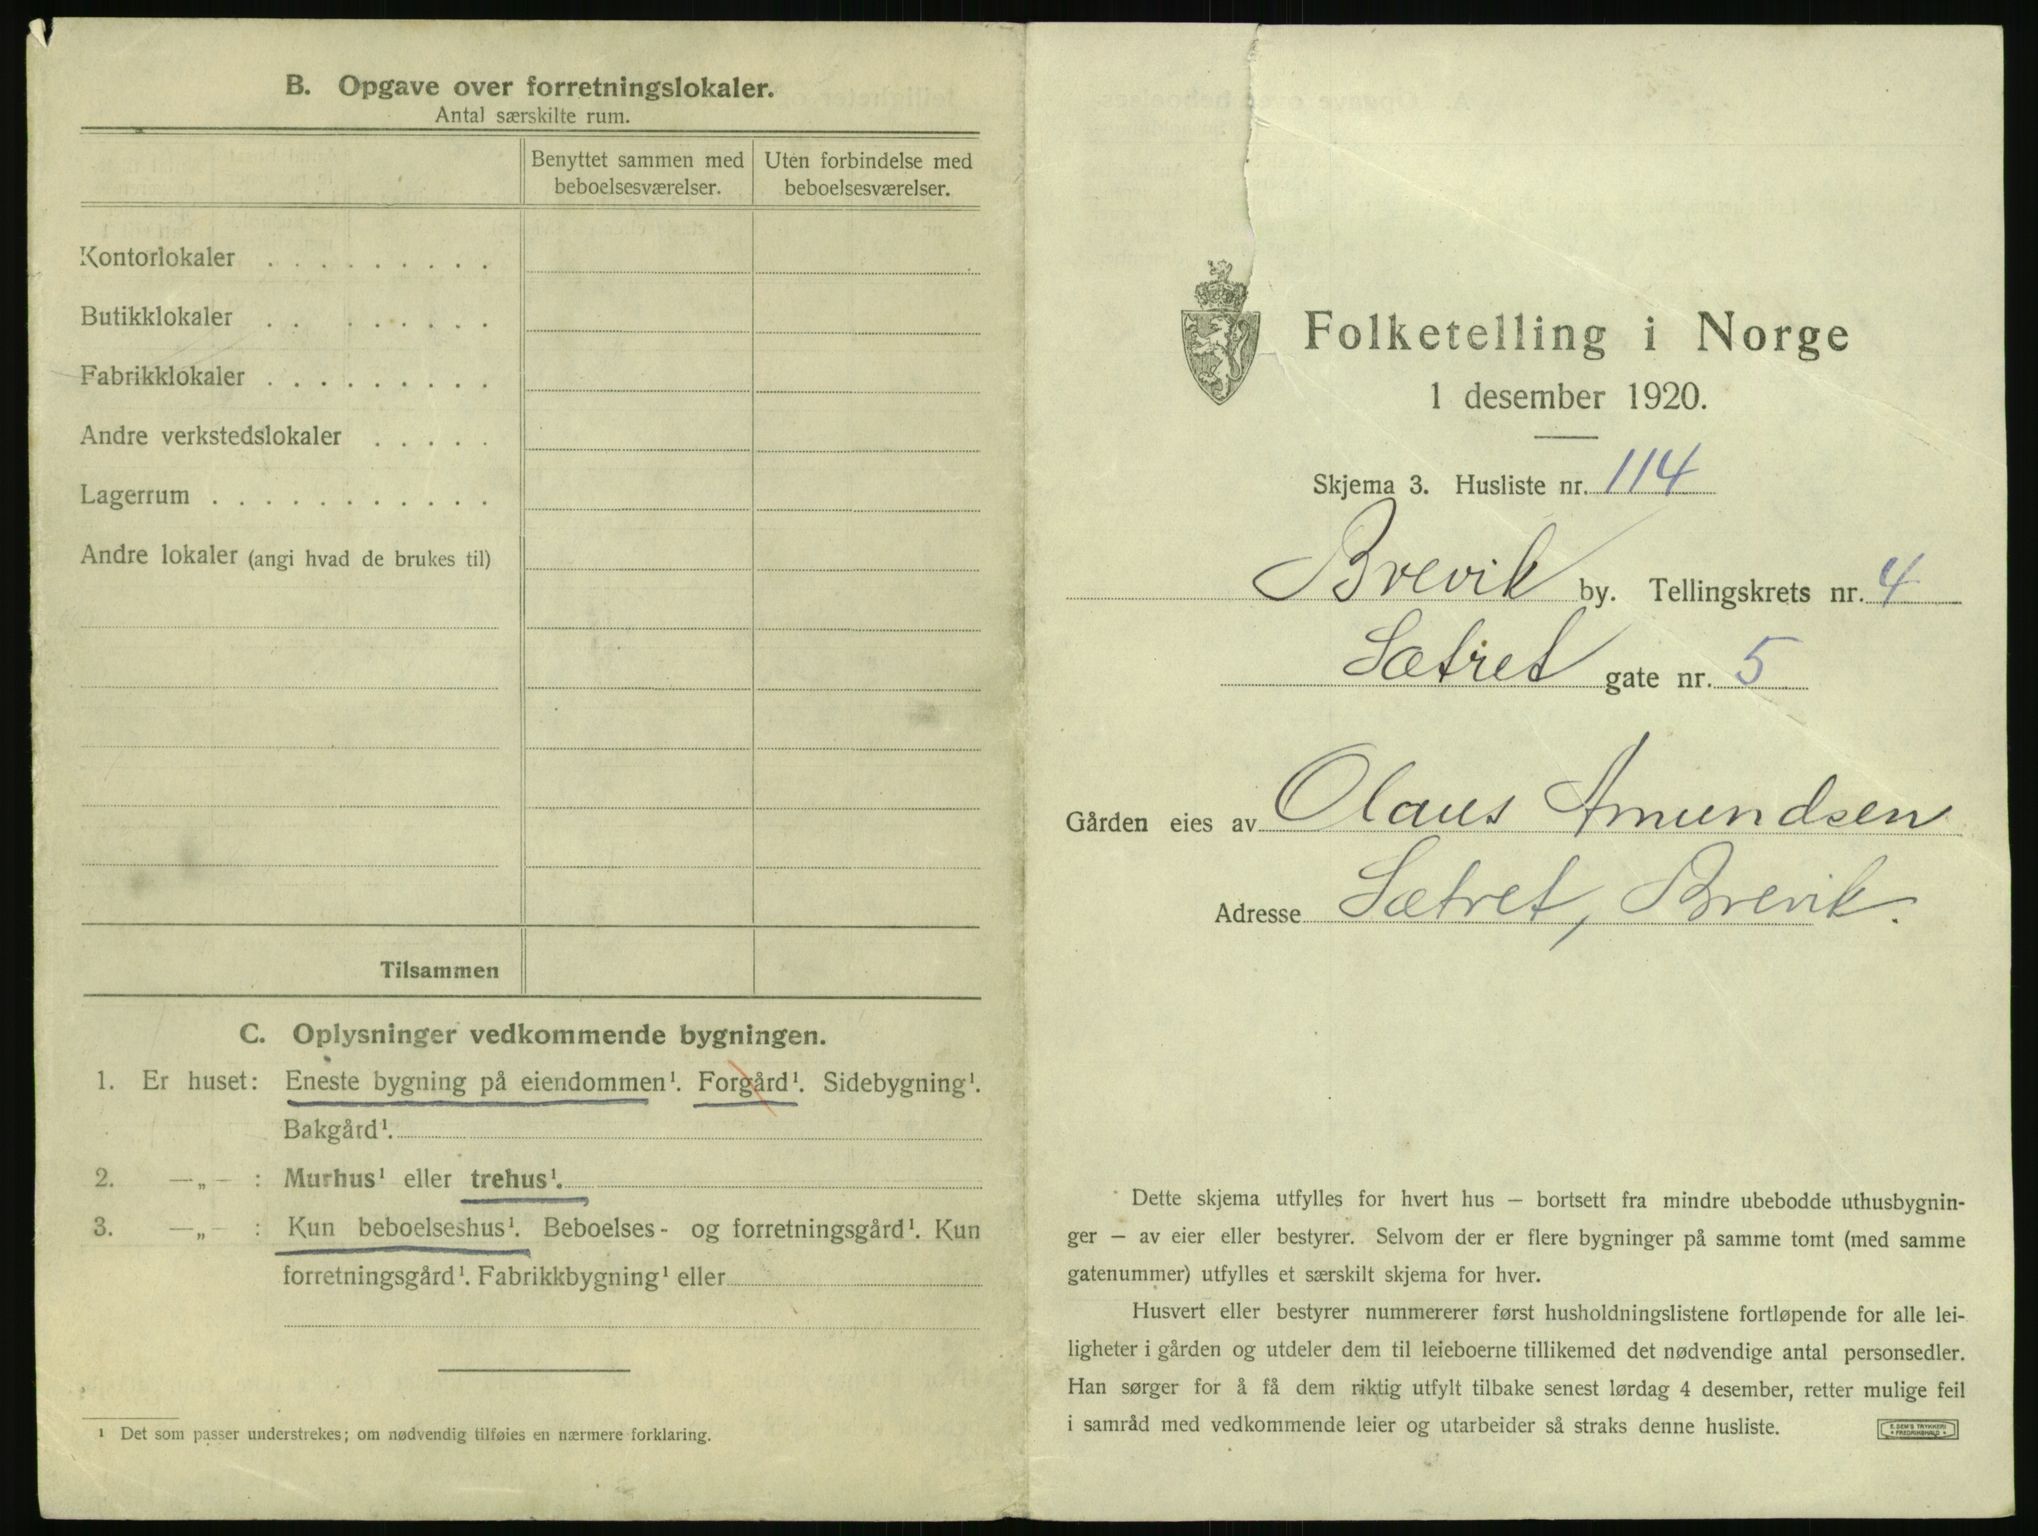 B. Opgave over forretningslokaler.
Antal særskilte rum.
Benyttet sammen med beboelsesværelser.
Uten forbindelse med beboelsesværelser.
Kontorlokaler . . . . . . . . .
Butikklokaler . . . . . . . .
Fabrikklokaler . . . . . . . . .
Andre verkstedslokaler . . . . .
Lagerrum . . . . . . . . . . .
Andre lokaler (angi hvad de brukes til)
Tilsammen
C. Oplysninger vedkommende bygningen.
1. Er huset: Eneste bygning på eiendommen¹. Forgård¹. Sidebygning¹.
Bakgård¹.
2. —„— : Murhus¹ eller trehus¹.
3. —„— : Kun beboelseshus¹. Beboelses- og forretningsgård¹. Kun
forretningsgård¹. Fabrikkbygning¹ eller
¹ Det som passer understrekes; om nødvendig tilføies en nærmere forklaring.
Folketelling i Norge
1 desember 1920.
Skjema 3. Husliste nr. 114
Brevik by. Tellingskrets nr. 4
Sætret gate nr. 5
Gården eies av Olaus Amundsen
Adresse Sætret, Brevik.
Dette skjema utfylles for hvert hus – bortsett fra mindre ubebodde uthusbygnin-
ger – av eier eller bestyrer. Selvom der er flere bygninger på samme tomt (med samme
gatenummer) utfylles et særskilt skjema for hver.
Husvert eller bestyrer nummererer først husholdningslistene fortløpende for alle lei-
ligheter i gården og utdeler dem til leieboerne tillikemed det nødvendige antal personsedler.
Han sørger for å få dem riktig utfylt tilbake senest lørdag 4 desember, retter mulige feil
i samråd med vedkommende leier og utarbeider så straks denne husliste.
E. SEM'S TRYKKERI
• FREDRIKSHALD •